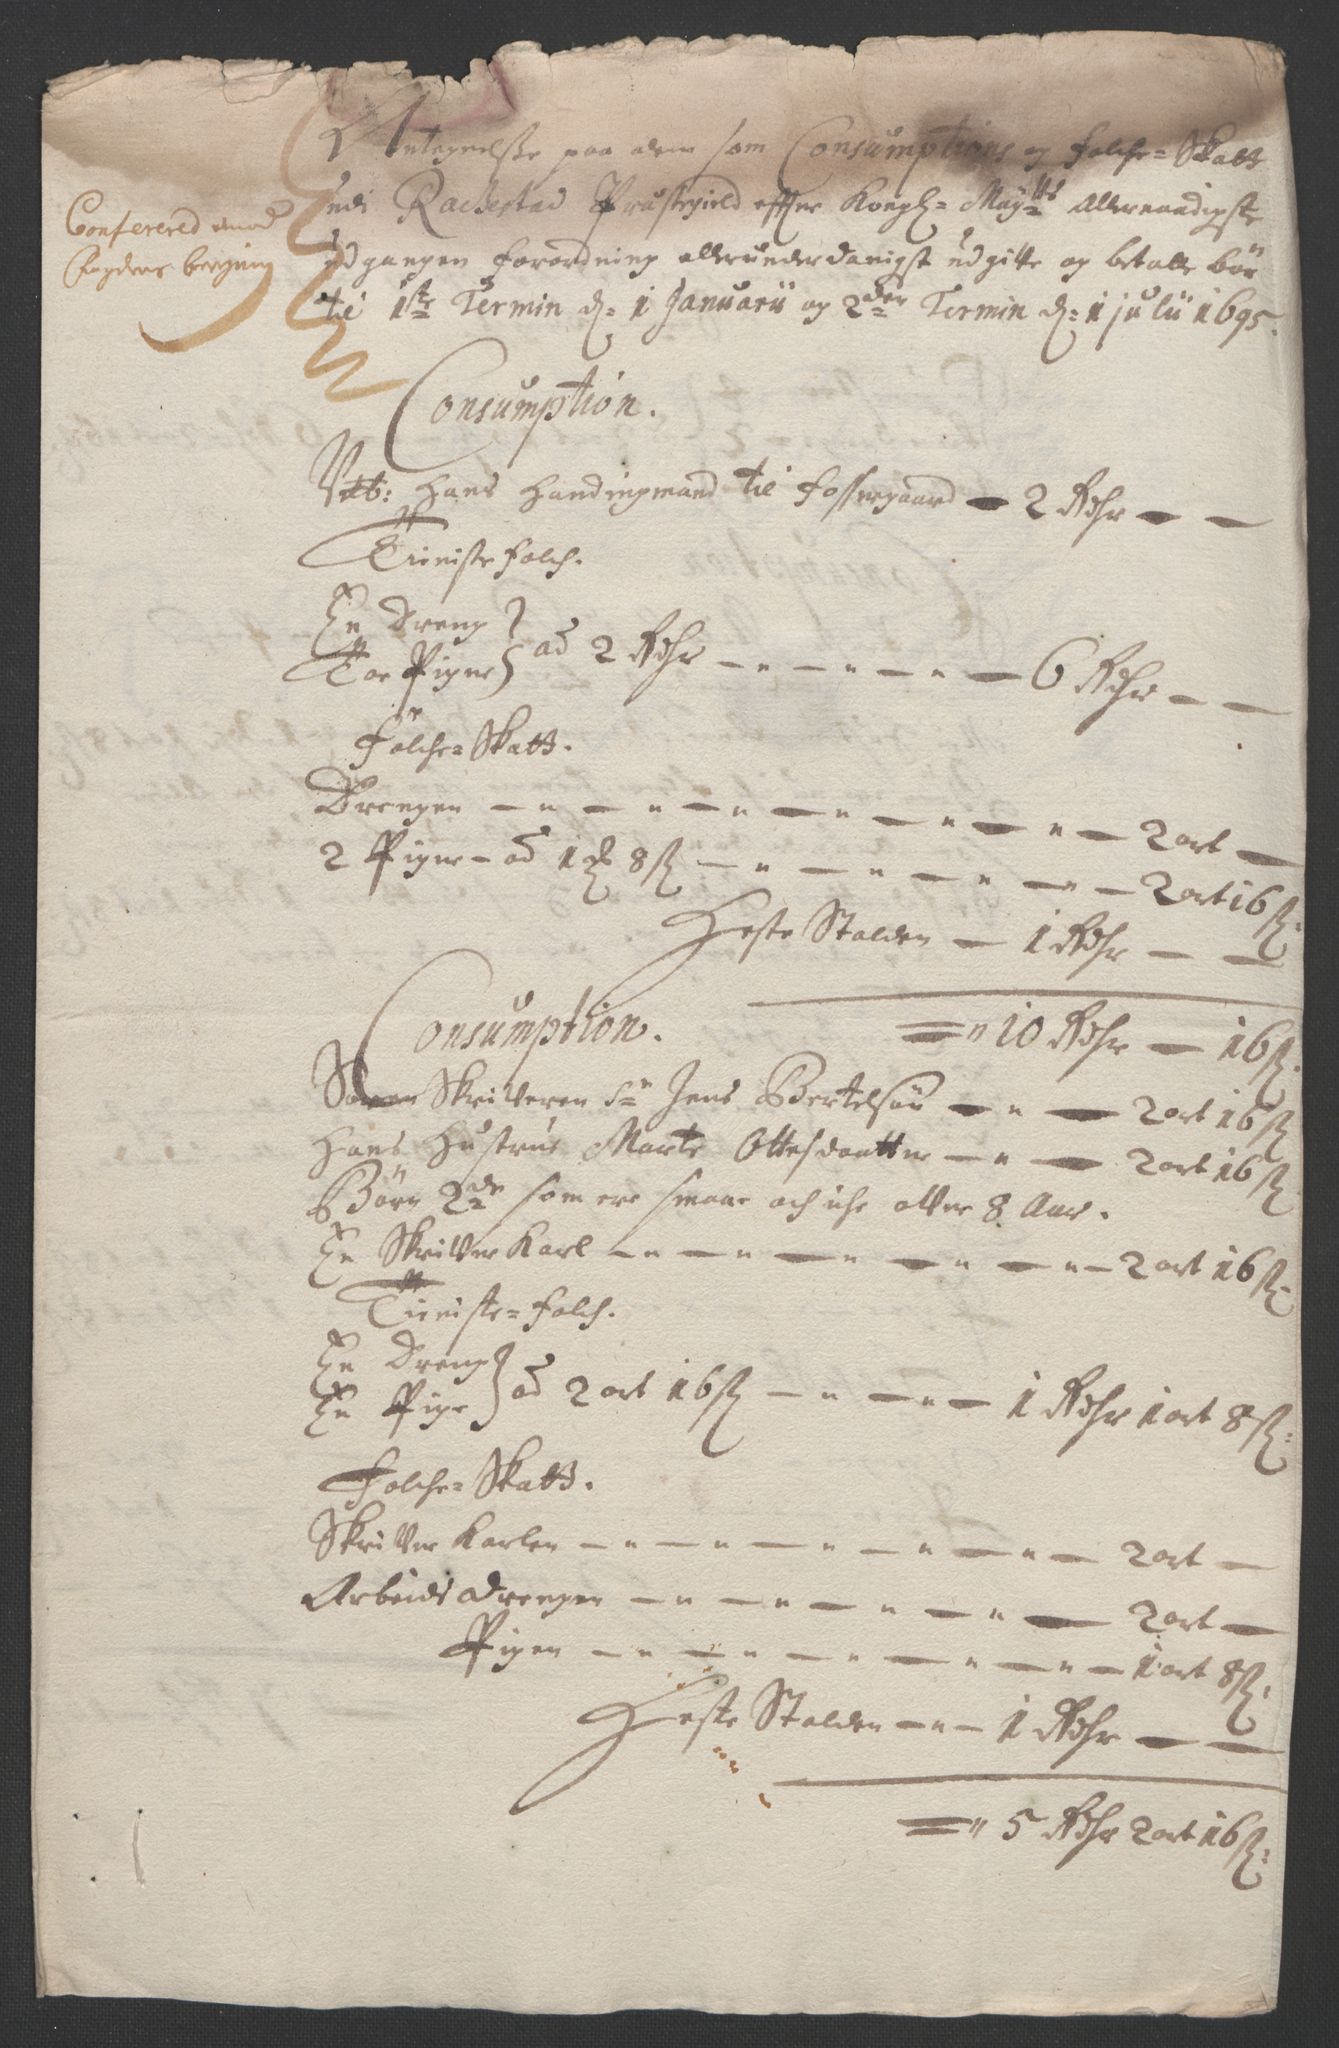 Antegnelse paa dem som Consumptions og folche-Skatt
udi Rackestad Præstegield effter Kongl: Mayts Allernaadigste
udgangen forordning allerunderdanigst udgitte og betalle bør
Confererd imod
Fogdens
til 1ste Termin d: 1 Januarii og 2den Termin d: 1 julii 1695.
Consumption.
Hans til fossergaard 2 Rdhr
Tieniste folch.
En Dreng
Toe Piger ad 2 Rdhr 6 Rdhr
folche-Skatt.
Drengen 2 ort
2 Piger ad 1 8 ß 2 ort 16 ß
Heste Stalden 1 Rdhr
10 Rdhr 16 ß
Consumption.
Skrifveren Sr Jens Bertelsøn 2 ort 16 ß
hans hustrue Marte Ottesdaatter 2 ort 16 ß
Børn 2de som ere smaae och iche ofver 8 Aar.
En Skrifver Karl 2 ort 16 ß
Tieniste-folch.
En Dreng
En Pige ad 2 ort 16 ß 1 Rdhr 1 ort 8 ß
folche-Skatt.
Skrifver Karlen 2 ort
Arbeids drengen 2 ort
Pigen 1 ort 8 ß
Heste Stalden 1 Rdhr
5 Rdhr 2 ort 16 ß